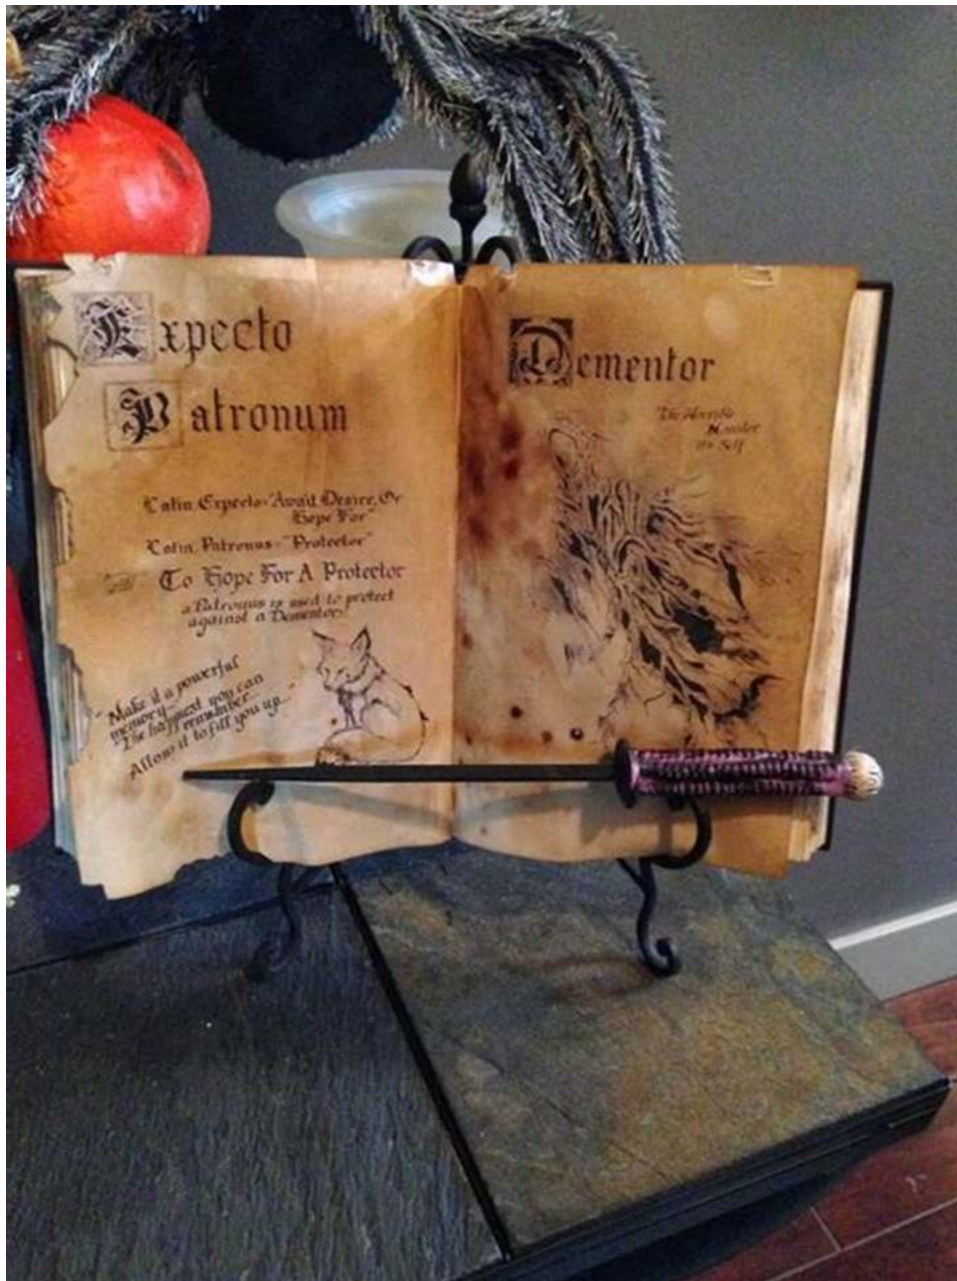 Expecto
Patronum
Latin, Expecto-"Await, Desire, Or
Hope For"
Latin, Patronus-"Protector"
To Hope For A Protector
a Patronus is used to protect
against a Dementor.
"Make it a powerful
memory...
The happiest you can
remember...
Allow it to fill you up..."
Dementor
The Horrible
Monster
It's Self